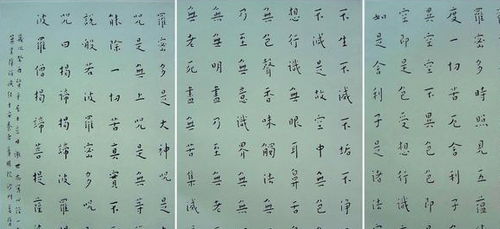 羅密多時照見五蘊
度一切苦厄舍利子
異空空不異色色即
空即是色受想行識
如是舍利子是諸法
不生不滅不垢不淨
不減是故空中無色
想行識無眼耳鼻舌
無色聲香味觸法無
乃至無意識界無
無明盡乃至無老
無老死盡無苦集滅
羅密多是大神咒是
咒是無上咒是無等
能除一切苦真實不
說般若波羅密多咒
咒曰揭諦揭諦波羅
波羅僧揭諦菩提薩